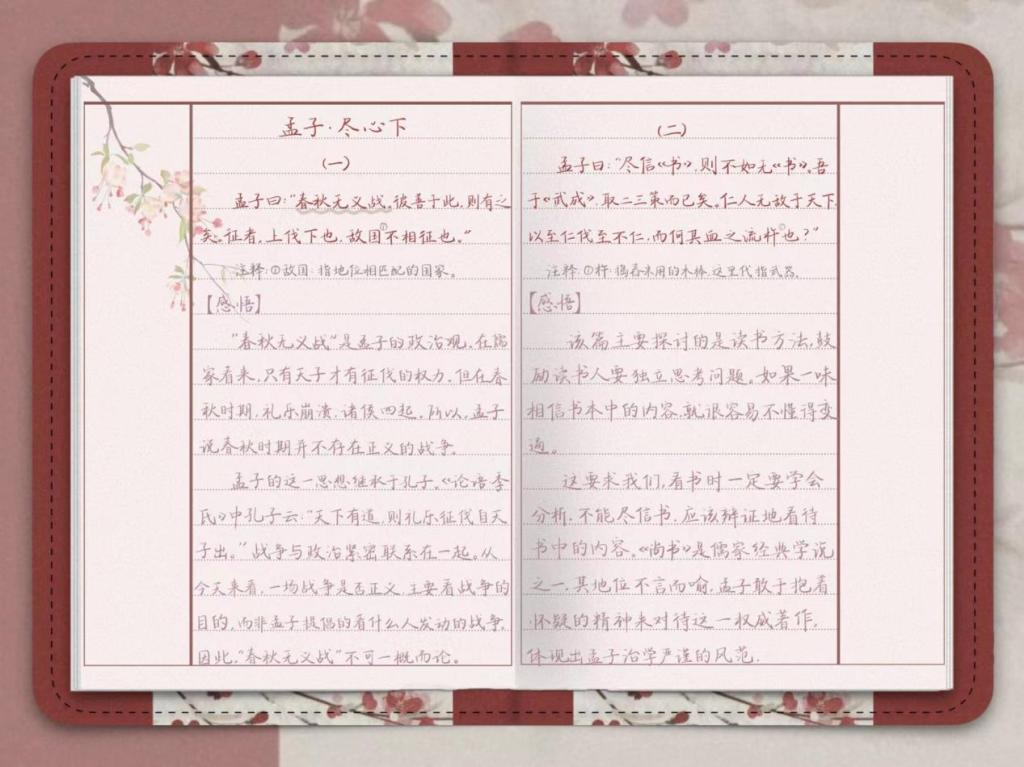 孟子·尽心下
(一)
孟子曰:"春秋无义战,彼善于此,则有之
矣。征者,上伐下也,敌国①不相征也。"
注释:①敌国:指地位相匹配的国家。
【感悟】
"春秋无义战"是孟子的政治观,在儒
家看来,只有天子才有征伐的权力。但在春
秋时期,礼乐崩溃,诸侯四起。所以,孟子
说春秋时期并不存在正义的战争。
孟子的这一思想继承于孔子。《论语·季
氏》中孔子云:"天下有道,则礼乐征伐自天
子出。"战争与政治紧密联系在一起。从
今天来看,一场战争是否正义,主要看战争的
目的,而非孟子提倡的看什么人发动的战争,
因此,"春秋无义战"不可一概而论。
(二)
孟子曰:"尽信《书》,则不如无《书》。吾
于《武成》,取二三策而已矣。仁人无敌于天下,
以至仁伐至不仁,而何其血之流杵①也?"
注释:①杵:捣舂米用的木棒,这里代指武器。
【感悟】
该篇主要探讨的是读书方法,鼓
励读书人要独立思考问题。如果一味
相信书本中的内容,就很容易不懂得变
通。
这要求我们,看书时一定要学会
分析,不能尽信书,应该辩证地看待
书中的内容。《尚书》是儒家经典学说
之一,其地位不言而喻,孟子敢于抱着
怀疑的精神来对待这一权威著作,
体现出孟子治学严谨的风范.